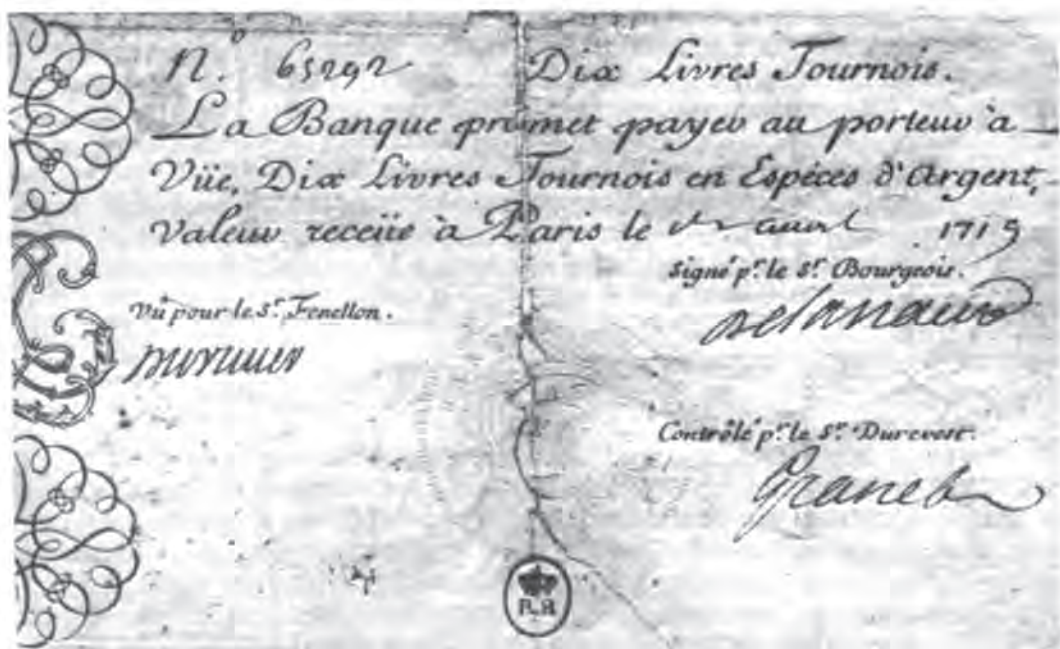 N.º 65292 Dix Livres Tournois.
La Banque promet payer au porteur à
Vüe, Dix Livres Tournois en Espéces d'Argent,
valeur receüe à Paris le avril 1719
Signé p.r le S.r Bourgeois.
Vû pour le S.r Fenellon.
Contrôlé p.r le S.r Durevest.
Granet